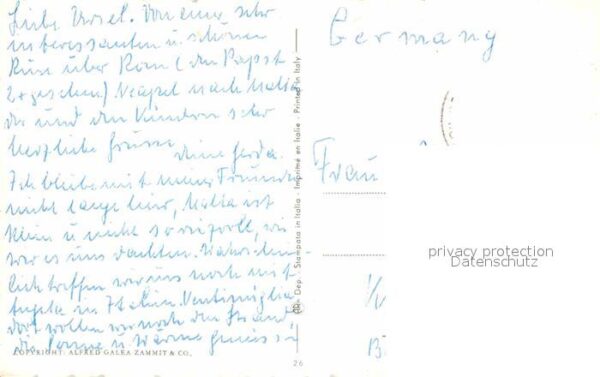 Liebe Ursel. Von einer sehr
interessanten u. schönen
Reise über Rom (den Papst
2x gesehen) Neapel nach Malta
dir und den Kindern sehr
herzliche Grüsse
deine Gerda.
Ich bleibe mit meiner Freundin
nicht lange hier, Malta ist
klein u. nicht so reizvoll, wie
wir es uns dachten. Wahrschein-
lich treffen wir uns noch mit
in Italien. Ventimiglia
dort wollen wir noch den Strand,
die Sonne u. Wärme
COPYRIGHT: ALFRED GALEA ZAMMIT & CO.
26
Dep. - Stampata in Italia - Imprimé en Italie - Printed in Italy
Germany
Frau
privacy protection
Datenschutz